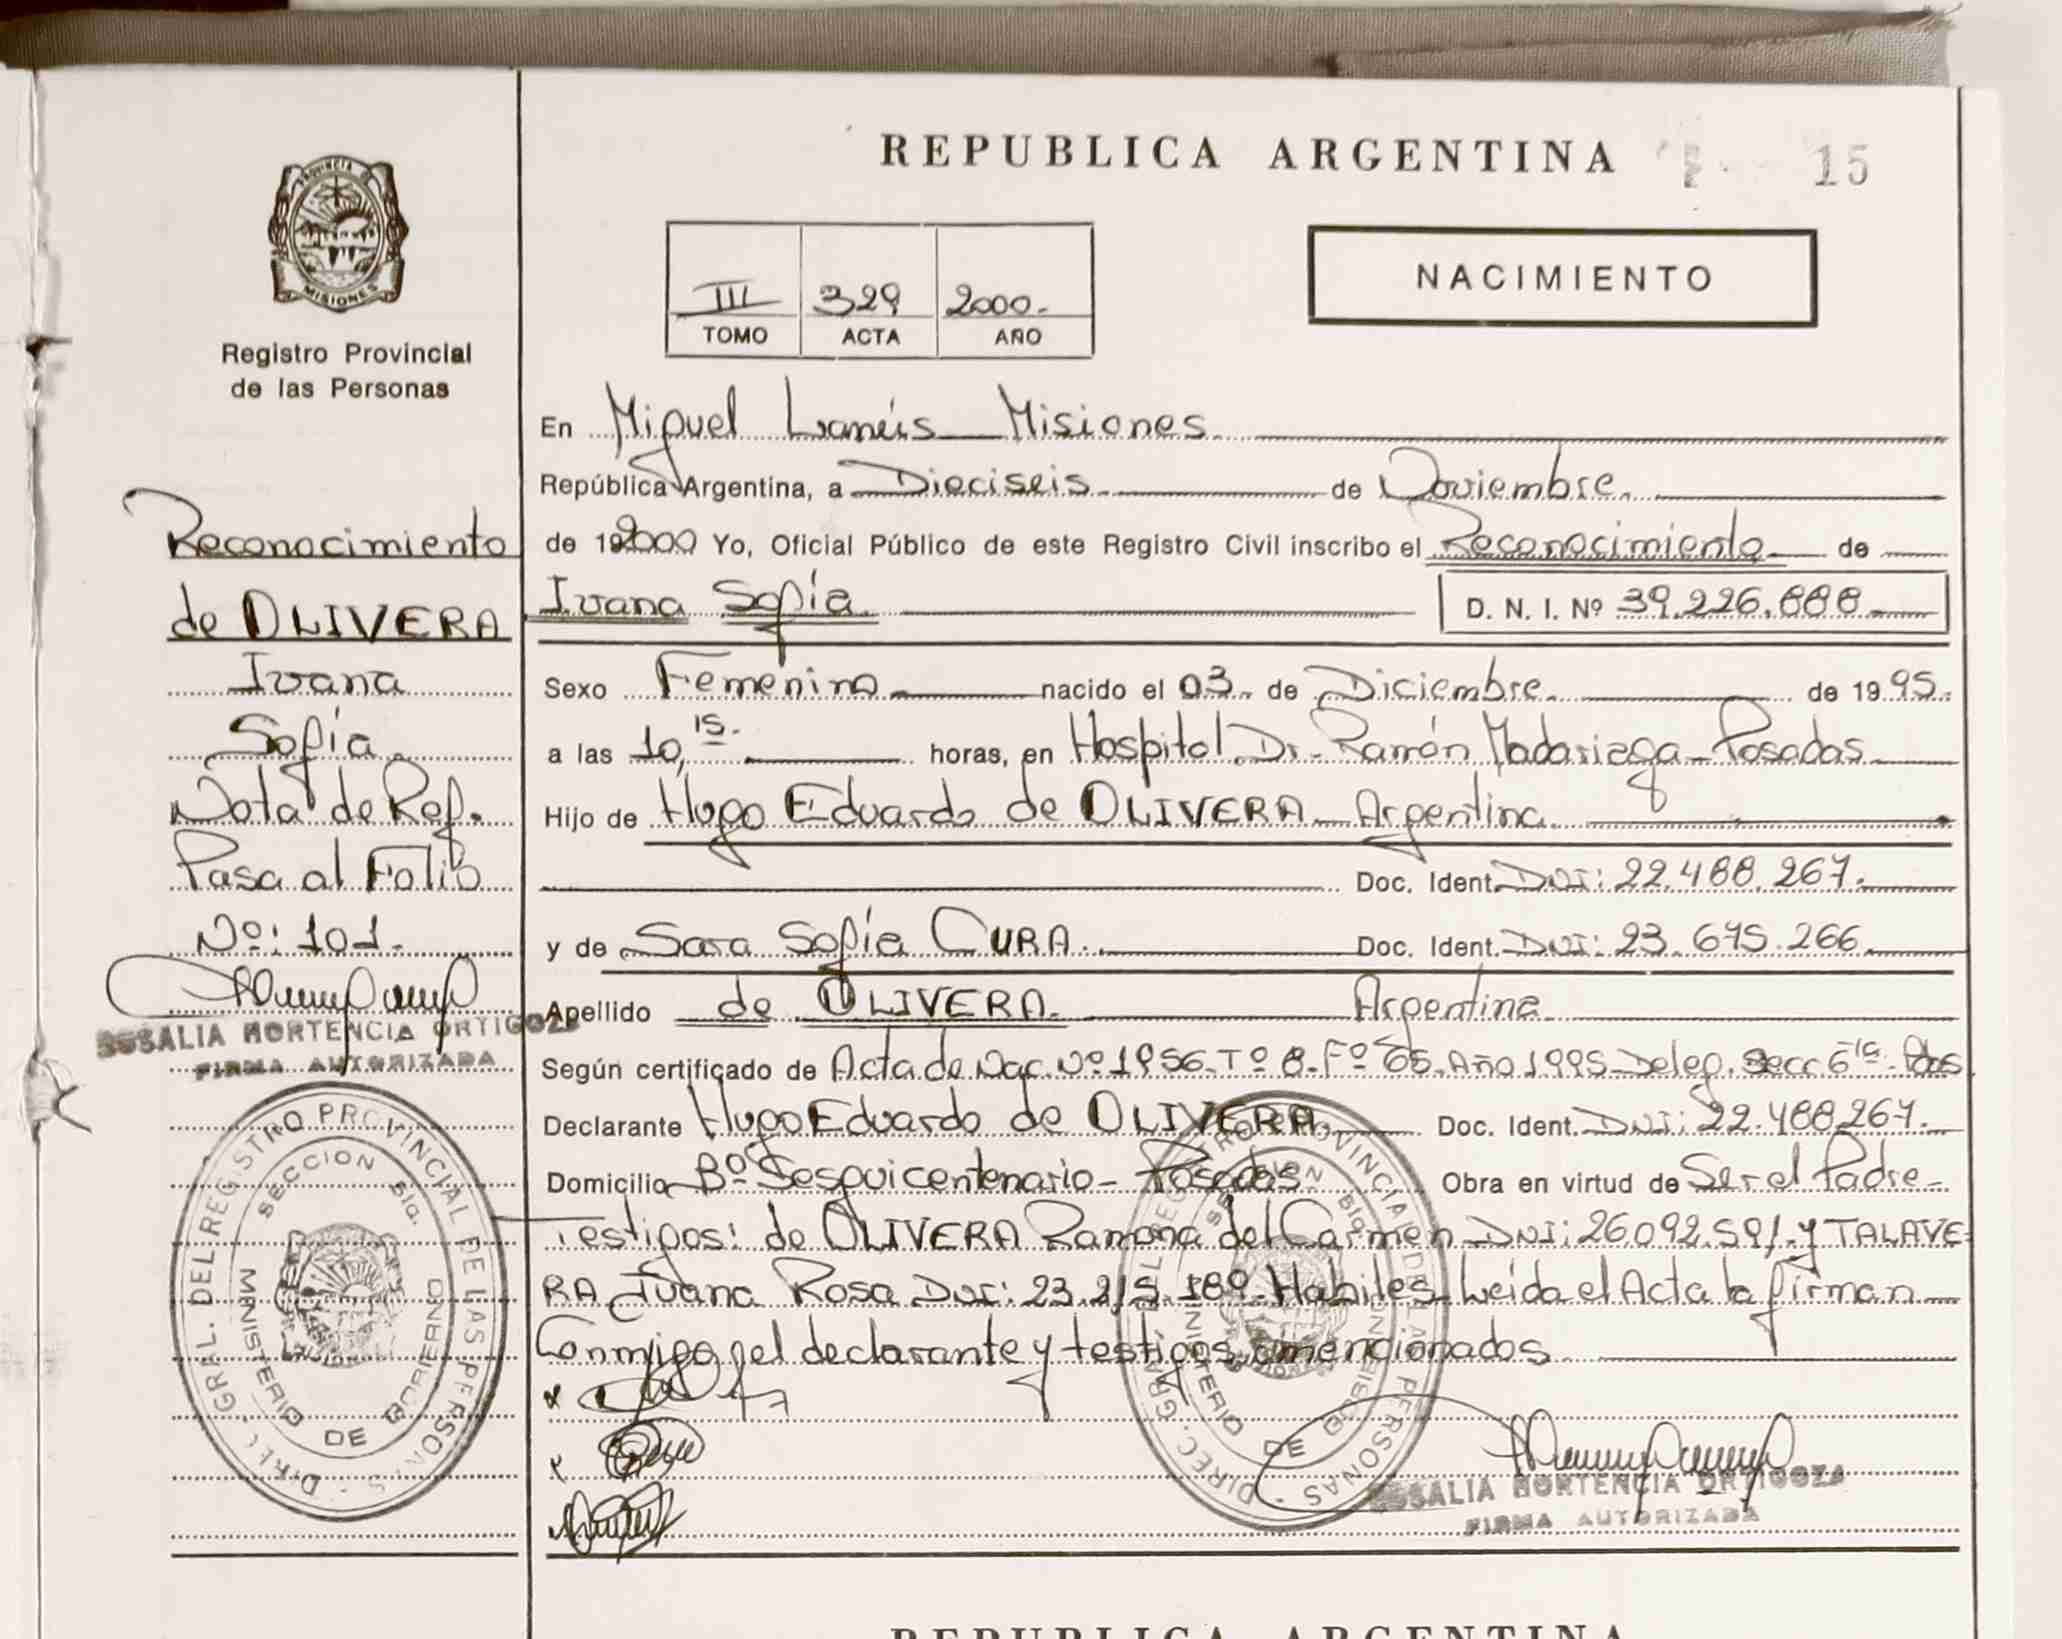 REPUBLICA ARGENTINA
15
PROVINCIA DE
MISIONES
Registro Provincial
de las Personas
III 329 2000.-
TOMO ACTA AÑO
NACIMIENTO
Reconocimiento
de OLIVERA
Ivana
Sofía
Nota de Ref.
Pasa al Folio
Nº: 101.
ROSALIA HORTENCIA ORTIGOZA
FIRMA AUTORIZADA
DIREC. GRAL. DEL REGISTRO PROVINCIAL DE LAS PERSONAS
SECCION 51a.
MINISTERIO DE GOBIERNO
En Miguel Lanús Misiones
República Argentina, a Dieciseis de Noviembre
de 192000 Yo, Oficial Público de este Registro Civil inscribo el Reconocimiento de
Ivana Sofía D. N. I. Nº 39.226.888.
Sexo Femenino nacido el 03 de Diciembre de 1995.
a las 10,15. horas, en Hospital Dr. Ramón Madariaga - Posadas
Hijo de Hugo Eduardo de OLIVERA Argentina
Doc. Ident. DNI: 22.488.267.
y de Sara Sofía CURA. Doc. Ident. DNI: 23.675.266.
Apellido de OLIVERA. Argentina
Según certificado de Acta de Nac. Nº 1956 Tº 8. Fº Año 1995 Deleg. Secc 6ta Pdas
Declarante Hugo Eduardo de OLIVERA. Doc. Ident. DNI: 22.488.267.
Domicilio Bº Sesquicentenario - Posadas Obra en virtud de Ser el Padre -
Testigos: de OLIVERA Ramona del Carmen DNI: 26.092.591. y TALAVE
RA Juana Rosa DNI: 23.215.189. Habiles Leida el Acta la firman
Conmigo el declarante y testigos mencionados
DIREC. GRAL. DEL REGISTRO PROVINCIAL DE LAS PERSONAS
SECCION 51a.
MINISTERIO DE GOBIERNO
ROSALIA HORTENCIA ORTIGOZA
FIRMA AUTORIZADA
REPUBLICA ARGENTINA